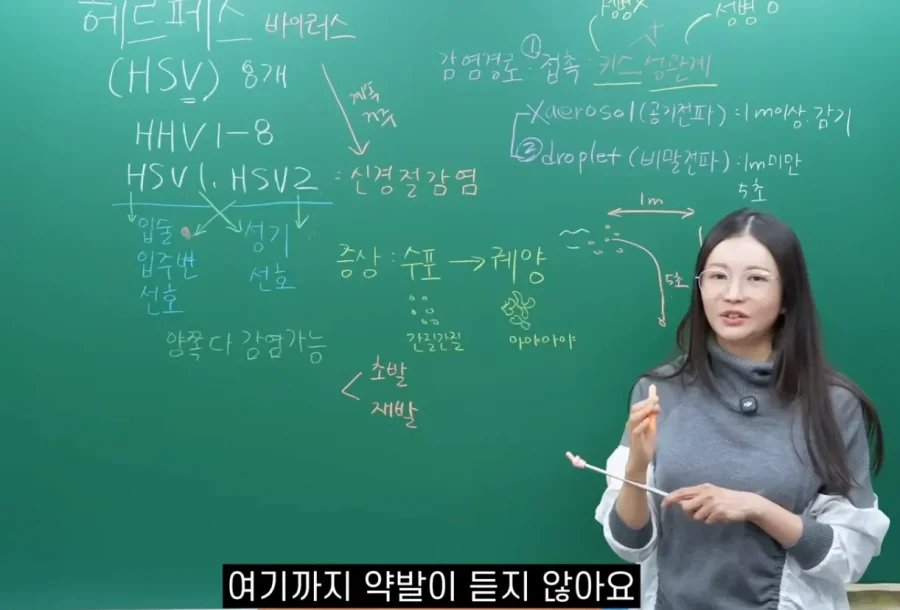 헤르페스 바이러스
(HSV) 8개
HHV 1-8
HSV1. HSV2 : 신경절감염
입술
입주변
선호
성기
선호
양쪽 다 감염가능
성병X
성병 O
감염경로 : ① 접촉 : 키스 성관계
X aerosol (공기전파) : 1m이상. 감기
② droplet (비말전파) : 1m미만
5초
1m
5초
증상 : 수포 → 궤양
간질간질
아야아야
초발
재발
여기까지 약발이 듣지 않아요